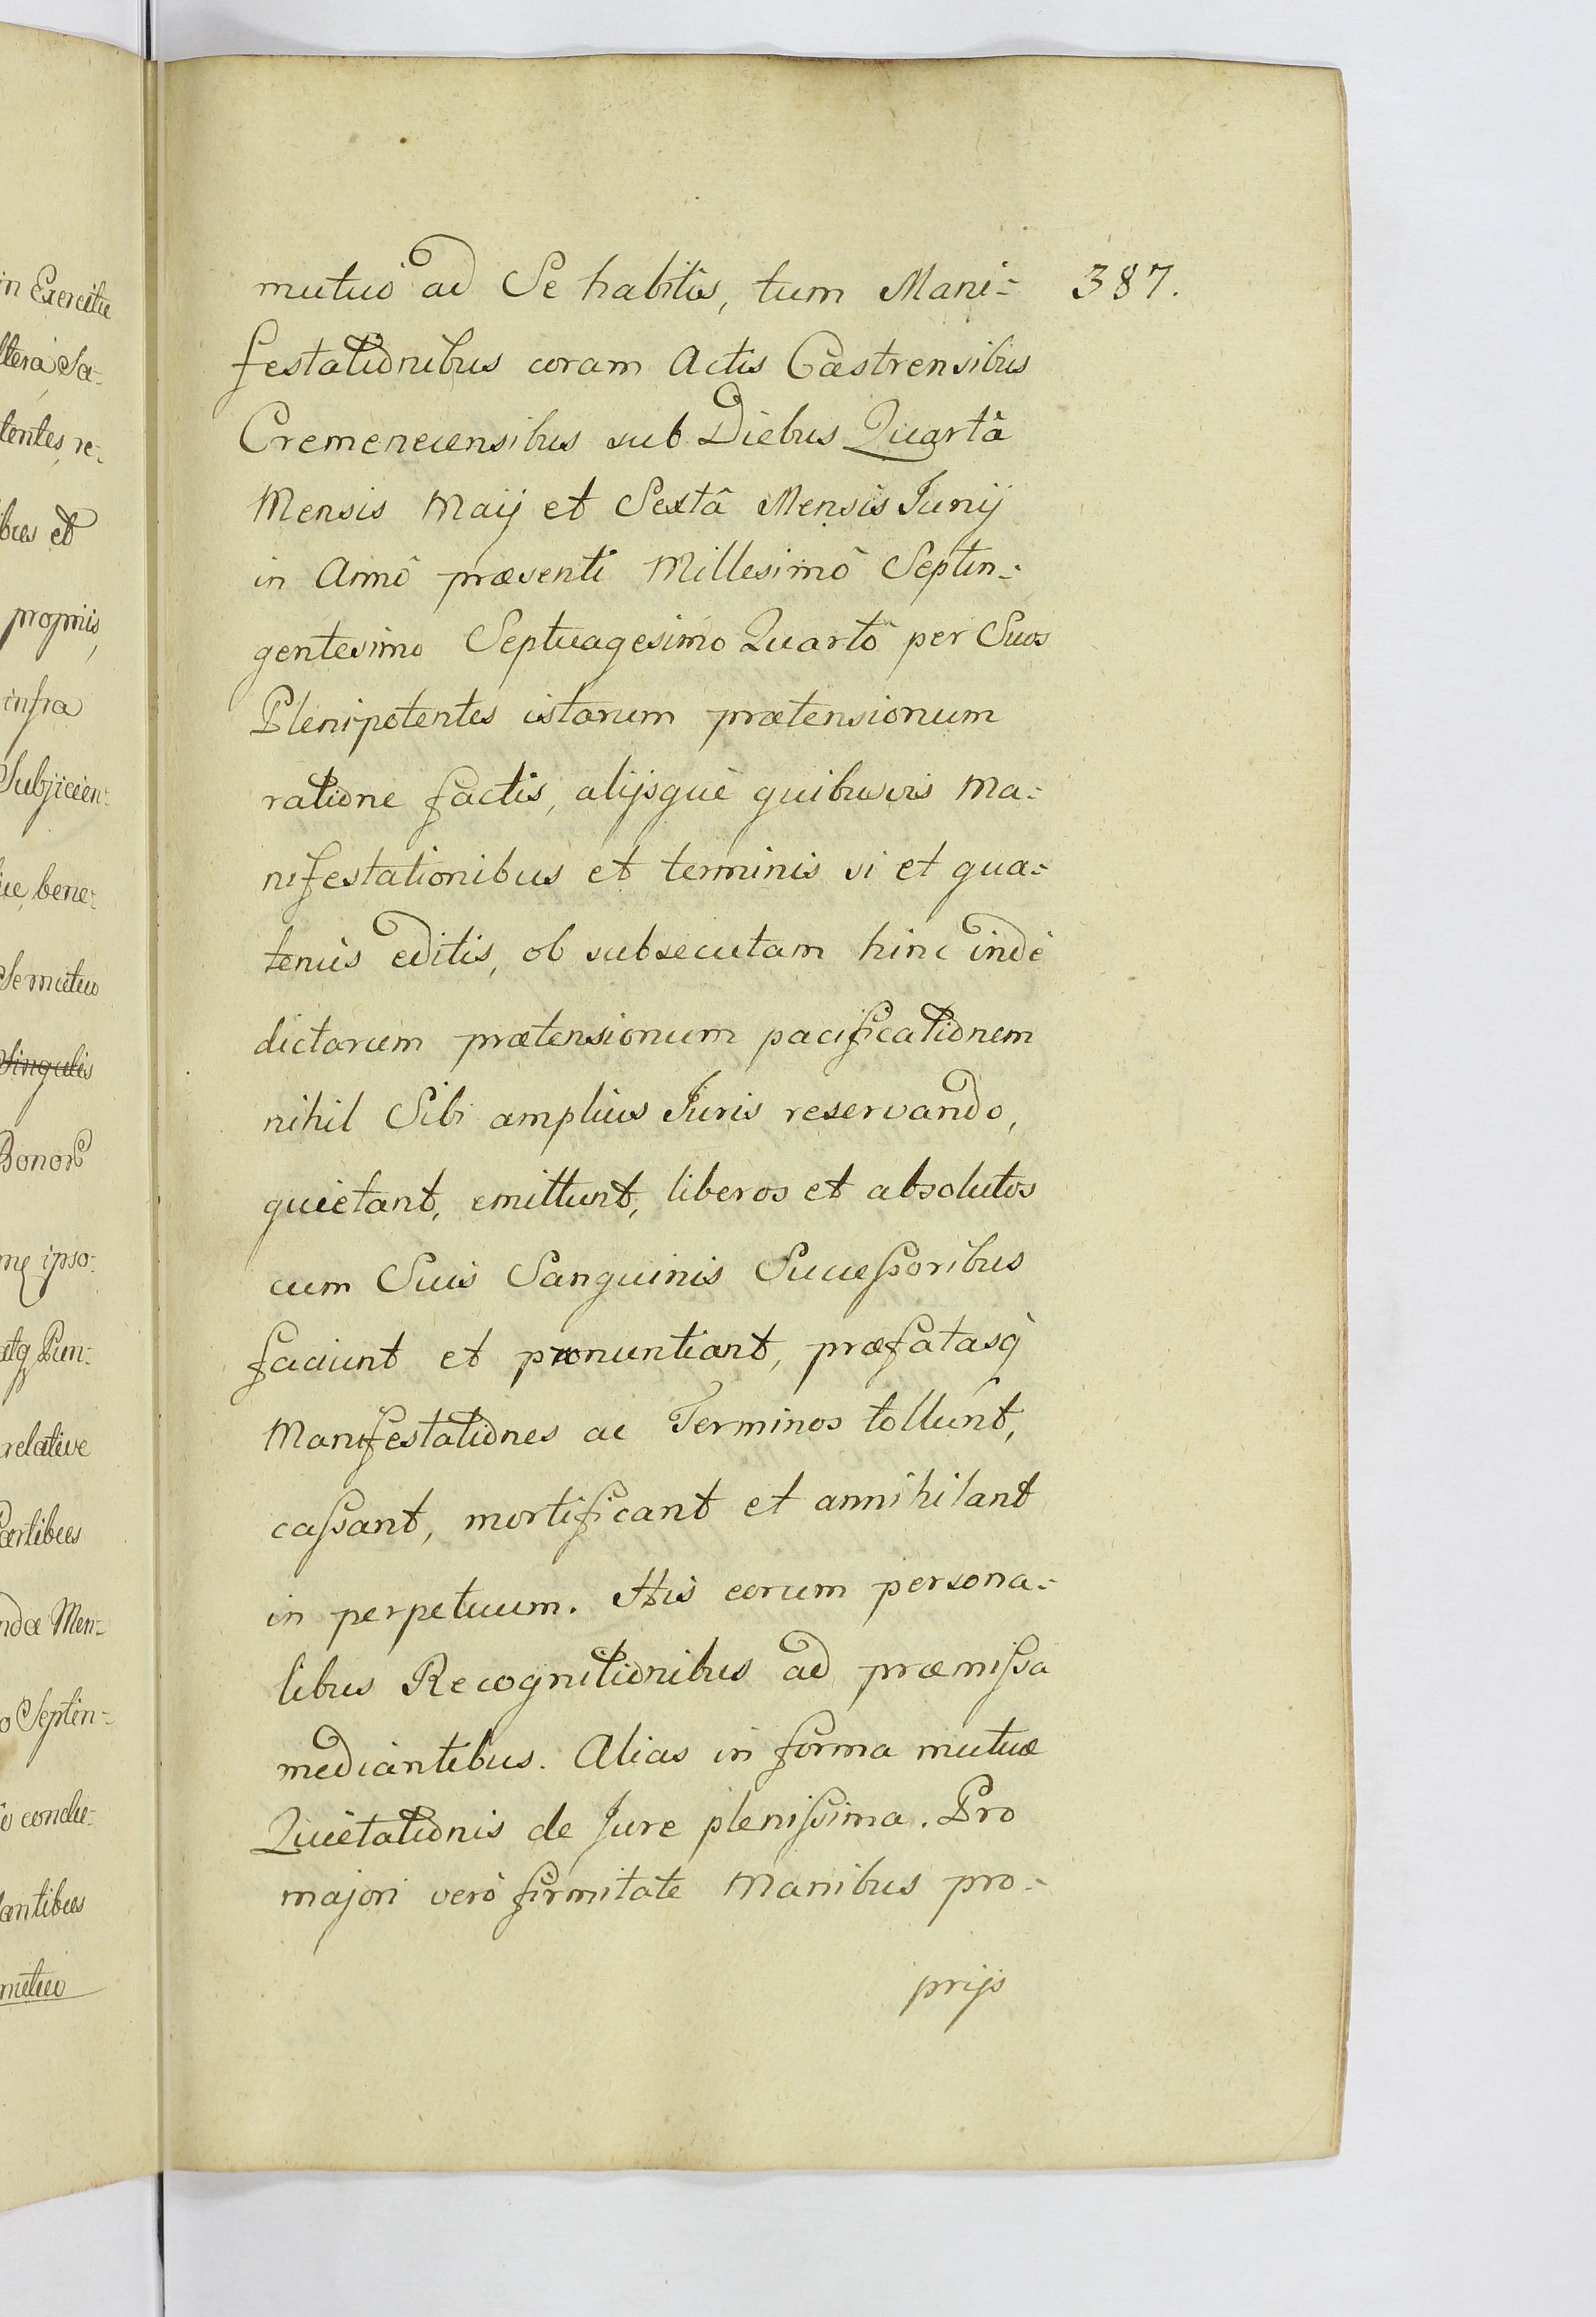 in Exercitu
ltera Sa-
tentes, re-
bus et
propriis,
infra
Subjicien-
bene-
Se mutuo
Singulis
Bonor
ipso-
atq Pun-
relative
Partibus
nda Men-
o Septin-
conclu-
antibus
mutuo
387.
mutuò ad Se habitis, tum Mani-
festationibus coram Actis Castrensibus
Cremenecensibus sub Diebus Quartâ
Mensis Maij et Sextâ Mensis Junij
in Annô præsenti Millesimô Septin-
gentesimo Septuagesimo Quartô per Suos
Plenipotentes istarum prætensionum
ratione factis, alijsquè quibusvis Ma-
nifestationibus et terminis si et qua-
tenùs editis, ob subsecutam hinc indè
dictarum prætensionum pacificationem
nihil Sibi amplius Juris reservando,
quietant, emittunt, liberos et absolutos
cum Suis Sanguinis Sucessoribus
faciunt et pronuntiant, præfatasq̀
Manifestationes ac Terminos tollunt,
cassant, mortificant et annihilant
in perpetuum. His eorum persona-
libus Recognitionibus ad præmissa
mediantibus. Alias in forma mutuæ
Quietationis de Jure plenissima. Pro
majori verò firmitate Manibus pro-
prijs